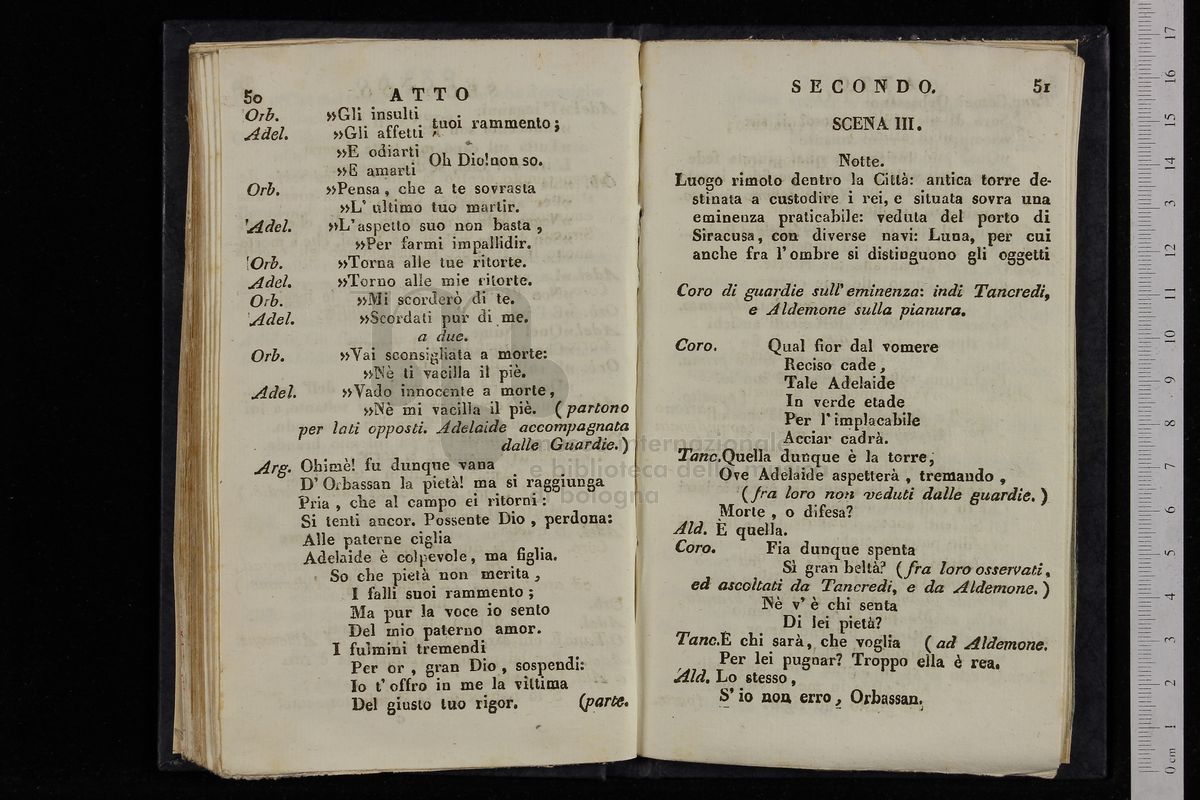 50 ATTO
Orb. »Gli insulti
Adel. »Gli affetti tuoi rammento;
»E odiarti
»E amarti Oh Dio! non so.
Orb. »Pensa, che a te sovrasta
»L' ultimo tuo martir.
Adel. »L' aspetto suo non basta,
»Per farmi impallidir.
Orb. »Torna alle tue ritorte.
Adel. »Torno alle mie ritorte.
Orb. »Mi scorderò di te.
Adel. »Scordati pur di me.
a due.
Orb. »Vai sconsigliata a morte:
»Nè ti vacilla il piè.
Adel. »Vado innocente a morte,
»Nè mi vacilla il piè. (partono
per lati opposti. Adelaide accompagnata
dalle Guardie.)
Arg. Ohimè! fu dunque vana
D' Orbassan la pietà! ma si raggiunga
Pria, che al campo ei ritorni:
Si tenti ancor. Possente Dio, perdona:
Alle paterne ciglia
Adelaide è colpevole, ma figlia.
So che pietà non merita,
I falli suoi rammento;
Ma pur la voce io sento
Del mio paterno amor.
I fulmini tremendi
Per or, gran Dio, sospendi:
Io t' offro in me la vittima
Del giusto tuo rigor. (parte.
SECONDO. 51
SCENA III.
Notte.
Luogo rimoto dentro la Città: antica torre de-
stinata a custodire i rei, e situata sovra una
eminenza praticabile: veduta del porto di
Siracusa, con diverse navi: Luna, per cui
anche fra l' ombre si distinguono gli oggetti
Coro di guardie sull' eminenza: indi Tancredi,
e Aldemone sulla pianura.
Coro. Qual fior dal vomere
Reciso cade,
Tale Adelaide
In verde etade
Per l' implacabile
Acciar cadrà.
Tanc. Quella dunque è la torre,
Ove Adelaide aspetterà, tremando,
(fra loro non veduti dalle guardie.)
Morte, o difesa?
Ald. È quella.
Coro. Fia dunque spenta
Sì gran beltà? (fra loro osservati,
ed ascoltati da Tancredi, e da Aldemone.)
Nè v' è chi senta
Di lei pietà?
Tanc. E chi sarà, che voglia (ad Aldemone.
Per lei pugnar? Troppo ella è rea.
Ald. Lo stesso,
S' io non erro, Orbassan.
museo internazionale
e biblioteca della musica
bologna
0 cm 1 2 3 4 5 6 7 8 9 10 11 12 13 14 15 16 17